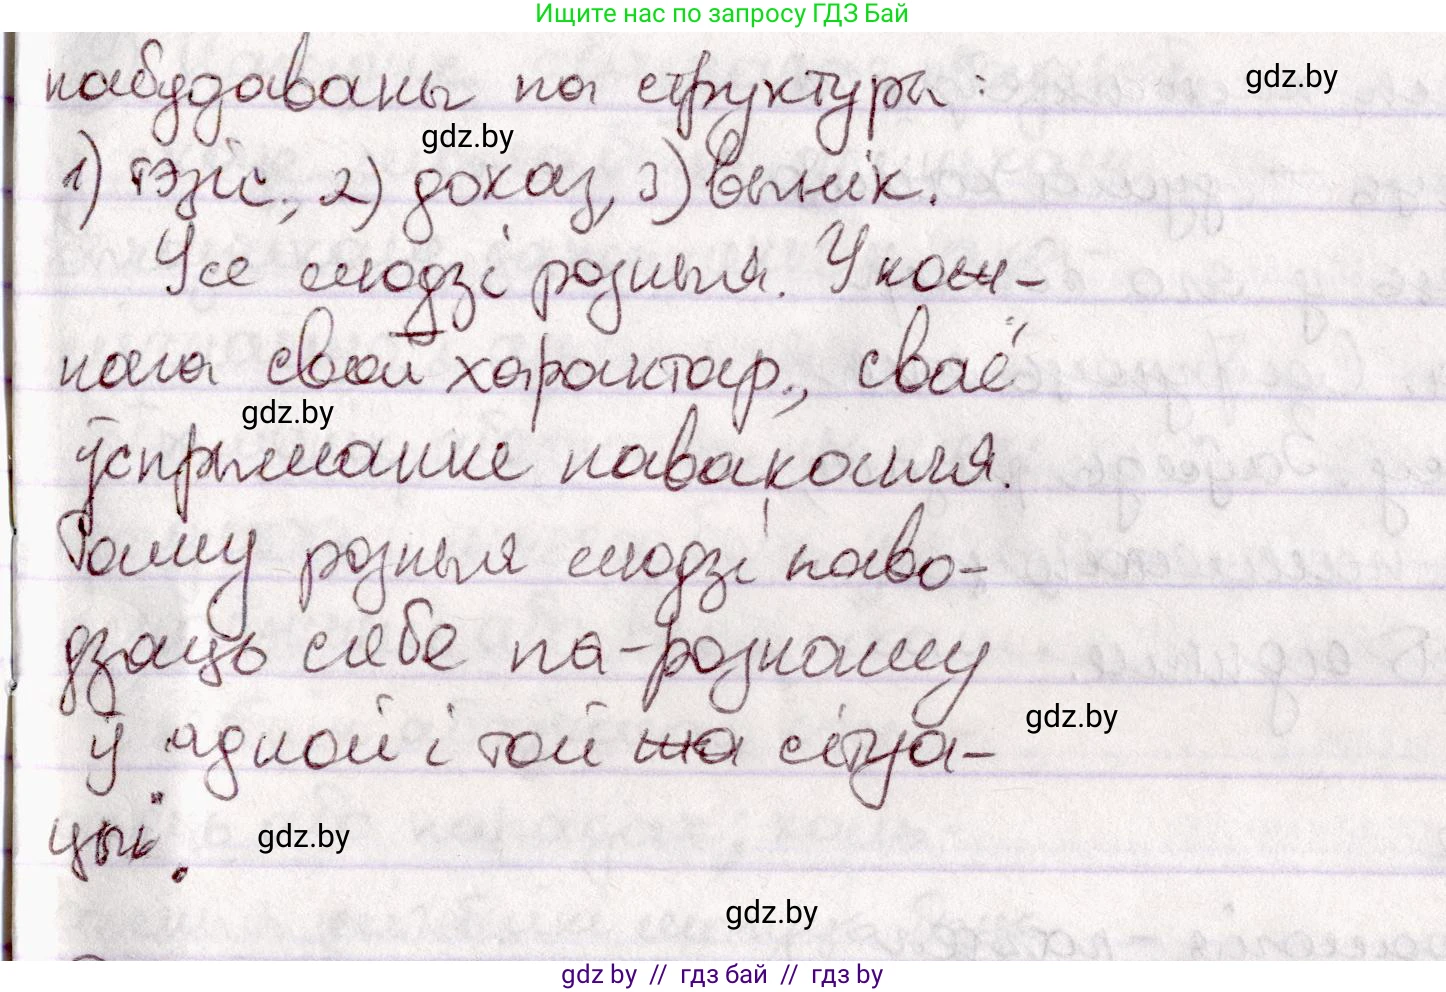 Ищите нас по запросу ГДЗ Бай
пабудаваны па структуры:
gdz.by
gdz.by
1) тэзіс, 2) доказ, 3) вынік.
Усе людзі розныя. У кож-
нага свой характар, сваё
gdz.by
ўспрыманне наваколля.
Таму розныя людзі паво-
дзяць сябе па-рознаму
gdz.by
ў адной і той жа сітуа-
цыі.
gdz.by
gdz.by
gdz by // гдз бай // гдз by